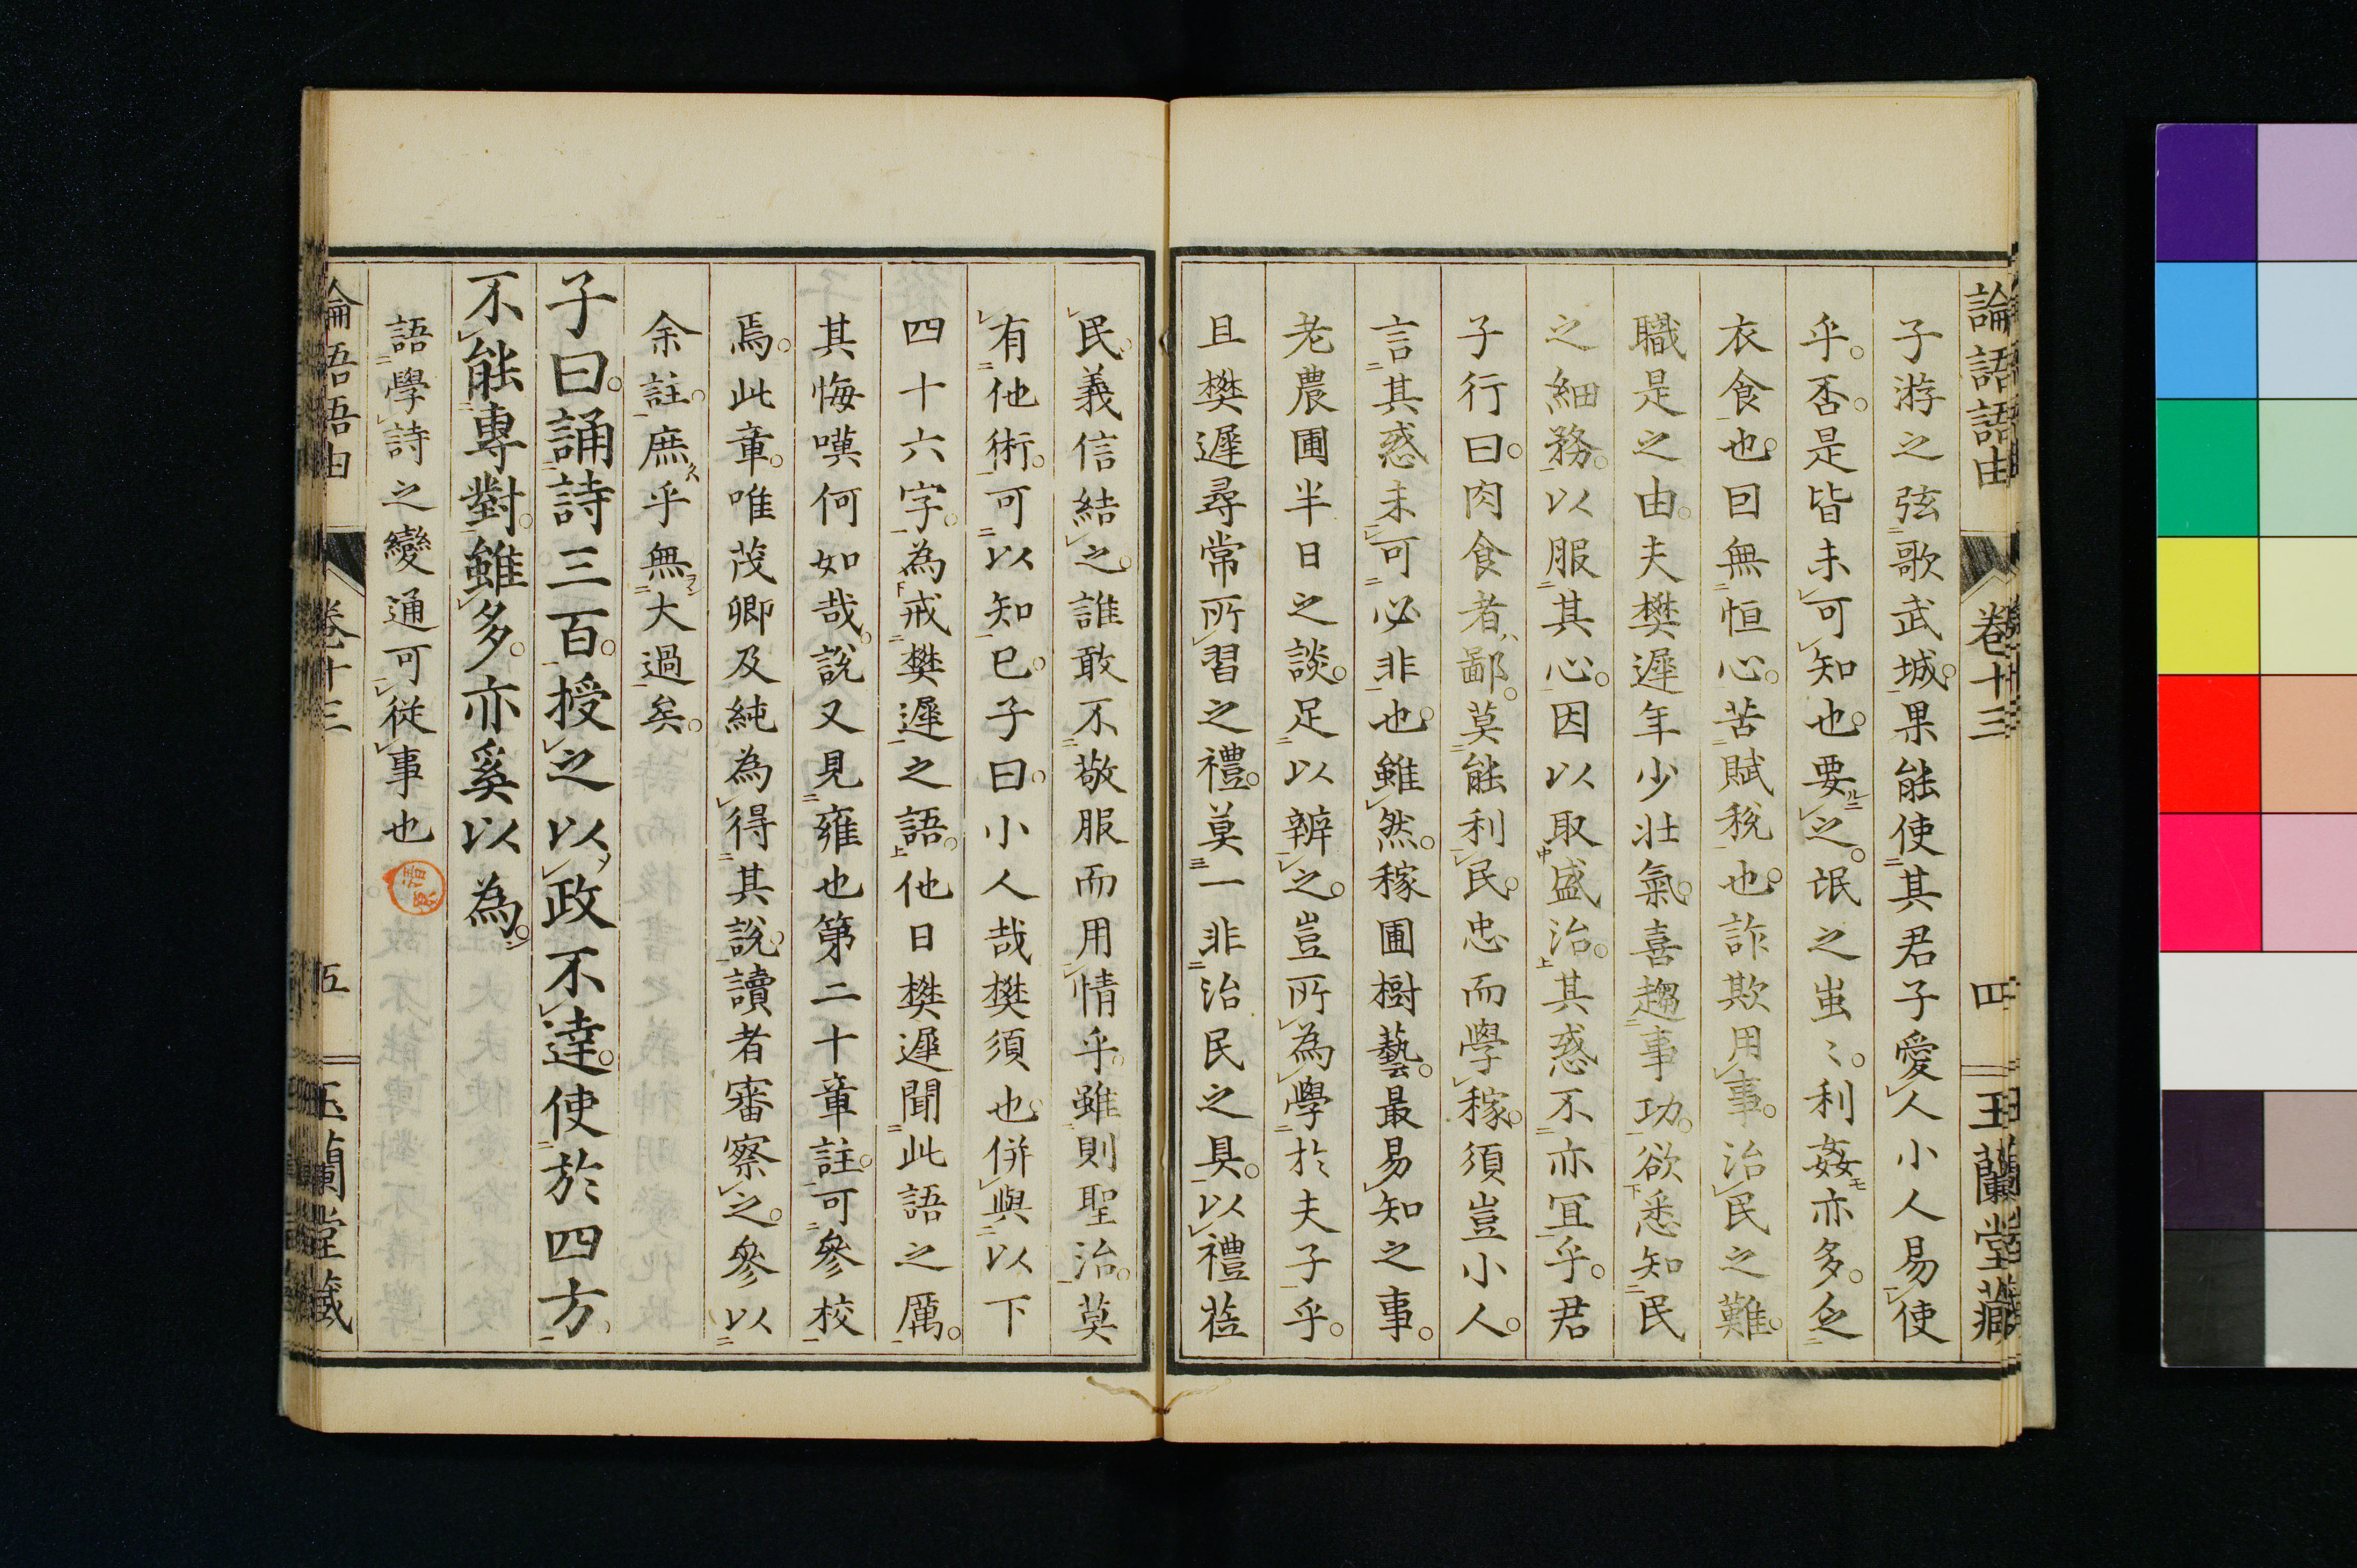 論語語由 卷十三 四 玉蘭堂藏
子游之弦歌武城。果能使其君子愛人小人易使
乎。否。是皆未可知也。要之。氓之蚩〻。利姦亦多。乏
衣食也。曰無恒心。苦賦稅也。詐欺用事。治民之難。
職是之由。夫樊遲年少壯氣。喜趨事功。欲悉知民
之細務。以服其心。因以取盛治。其惑不亦宜乎。君
子行曰。肉食者鄙。莫能利民。忠而學稼。須豈小人。
言其惑未可必非也。雖然。稼圃樹藝。最易知之事。
老農圃半日之談。足以辨之。豈所為學於夫子乎。
且樊遲尋常所習之禮。莫一非治民之具。以禮莅
民。義信結之。誰敢不敬服而用情乎。雖則聖治。莫
有他術。可以知已。子曰。小人哉樊須也。併與以下
四十六字。為戒樊遲之語。他日樊遲聞此語之厲。
其悔嘆何如哉。說又見雍也第二十章註。可參校
焉。此章。唯茂卿及純為得其說。讀者審察之。參以
余註。庶乎無大過矣。
子曰。誦詩三百。授之以政不達。使於四方
不能專對。雖多。亦奚以為。
語學詩之變通可從事也
論語語由 卷十三 五 玉蘭堂藏